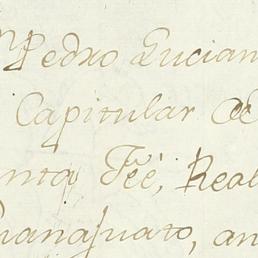 Pedro Lucian
Capitular
nta Feè, Real
uanajuato, an